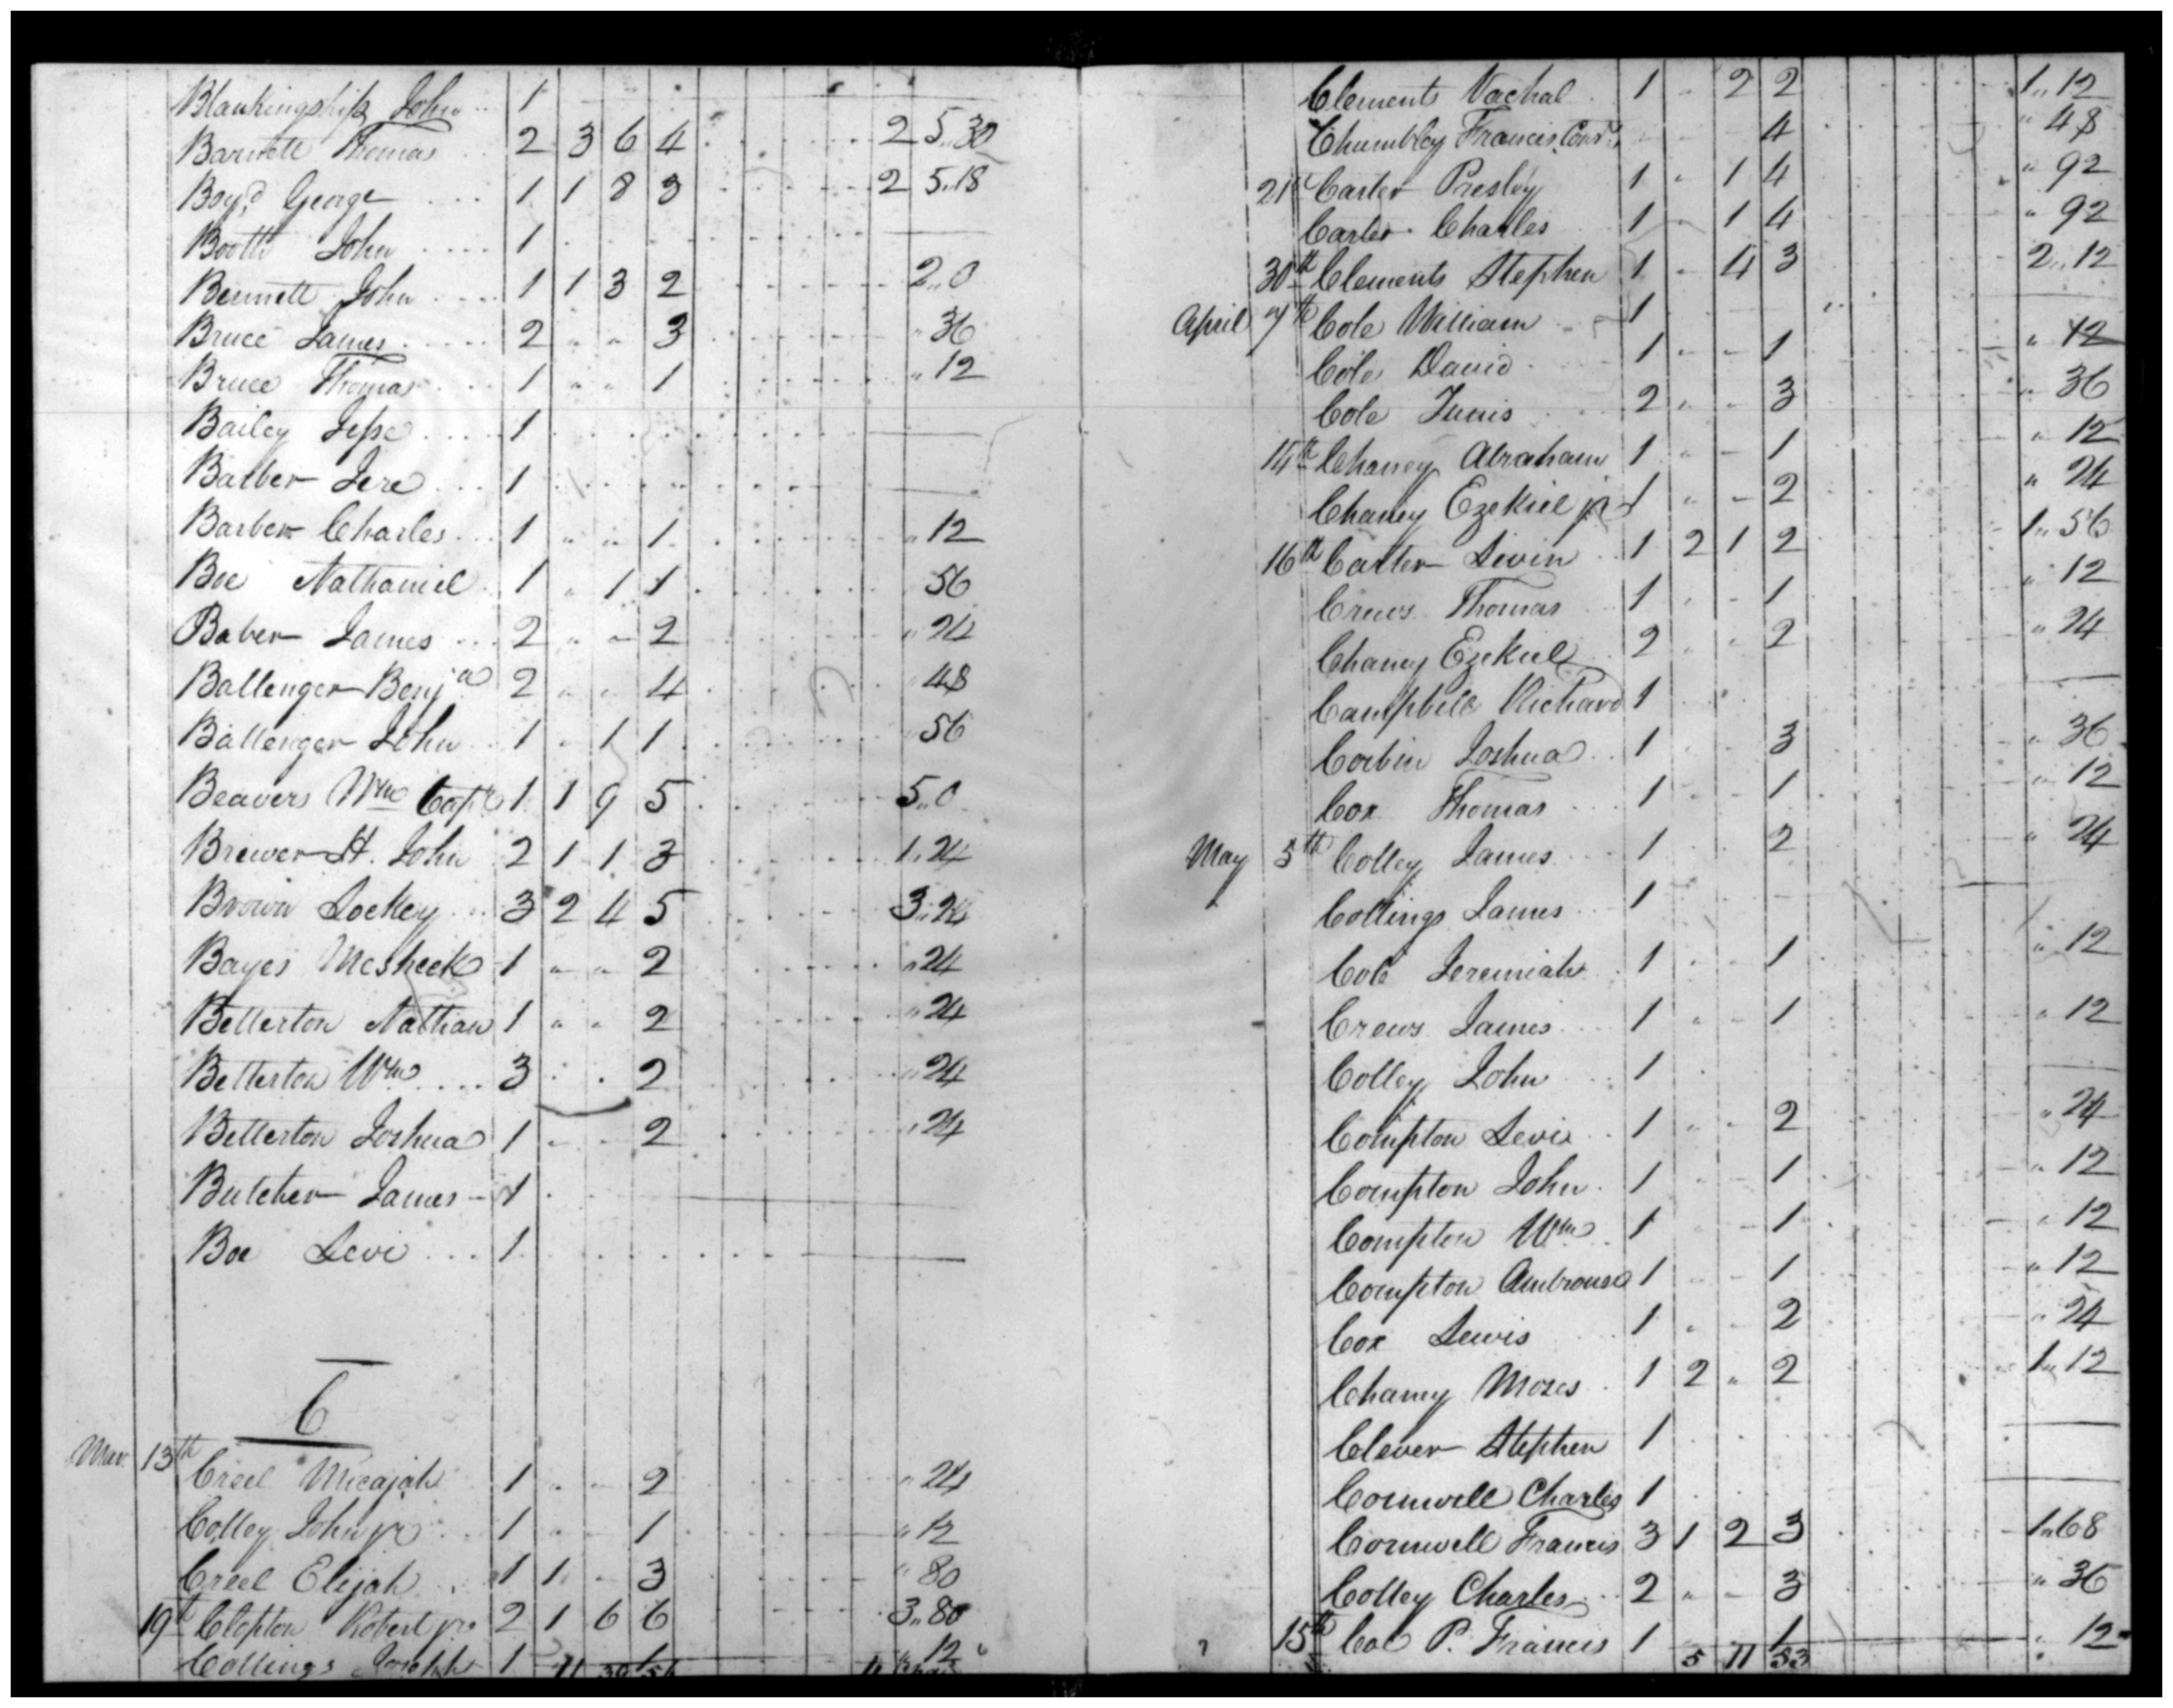 Blankingship John 1
Barnett Thomas 2 3 6 4 2 5.30
Boyd George 1 1 8 3 2 5.18
Booth John 1
Bennett John 1 1 3 2 2.0
Bruce James 2 " " 3 " 36
Bruce Thomas 1 " " 1 " 12
Bailey Jesse 1
Barber Jere 1
Barber Charles 1 " " 1 " 12
Boe Nathaniel 1 " 1 1 56
Baber James 2 " " 2 " 24
Ballenger Benja 2 " " 4 " 48
Ballenger John 1 " 1 1 " 56
Beavers Wm Capt 1 1 9 5 5.0
Brewer St. John 2 1 1 3 1.24
Brown Lockey 3 2 4 5 3.24
Bayes Mesheck 1 " " 2 " 24
Betterton Nathan 1 " " 2 " 24
Betterton Wm 3 " " 2 " 24
Betterton Joshua 1 " " 2 " 24
Butcher James 1
Boe Levi 1
C
Mar. 13th Creel Micajah 1 " " 2 " 24
Colley John jr 1 " " 1 " 12
Creel Elijah 1 1 " 3 " 80
19th Clopton Robert jr 2 1 6 6 3.80
Collings Joseph 1 1 " 12
Clements Vachal 1 " 2 2 1.12
Chumbley Francis Const 4 " 48
21st Carter Presley 1 " 1 4 " 92
Carter Charles 1 " 1 4 " 92
30th Clements Stephen 1 " 4 3 2.12
April 7th Cole William 1
Cole David 1 " " 1 " 12
Cole Junis 2 " " 3 " 36
14th Chaney Abraham 1 " " 1 " 12
Chaney Ezekiel jr 1 " " 2 " 24
16th Carter Levin 1 2 1 2 1.56
Crews Thomas 1 " " 1 " 12
Chaney Ezekiel 2 " " 2 " 24
Campbell Richard 1
Corbin Joshua 1 3 " 36
Cox Thomas 1 " " 1 " 12
May 5th Colley James 1 2 " 24
Collings James 1
Cole Jeremiah 1 " " 1 " 12
Crews James 1 " " 1 " 12
Colley John 1
Compton Levi 1 " " 2 " 24
Compton John 1 " " 1 " 12
Compton Wm 1 " " 1 " 12
Compton Ambrouse 1 " " 1 " 12
Cox Lewis 1 " " 2 " 24
Chaney Moses 1 2 " 2 1.12
Clever Stephen 1
Cornwell Charles 1
Cornwell Francis 3 1 2 3 1.68
Colley Charles 2 " " 3 " 36
15th P. Francis 1 1 " 12
5 11 53